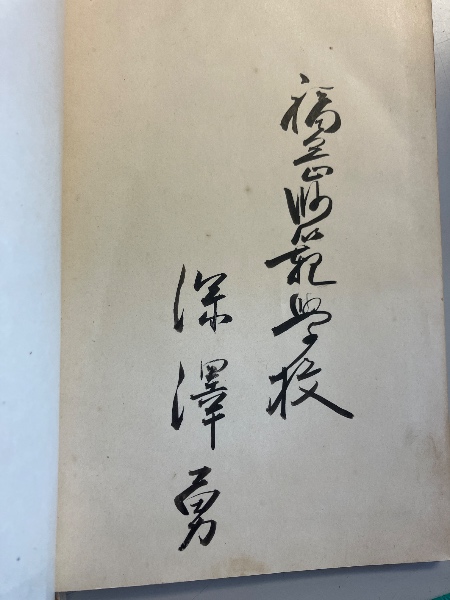 福岡師範學校
深澤勇